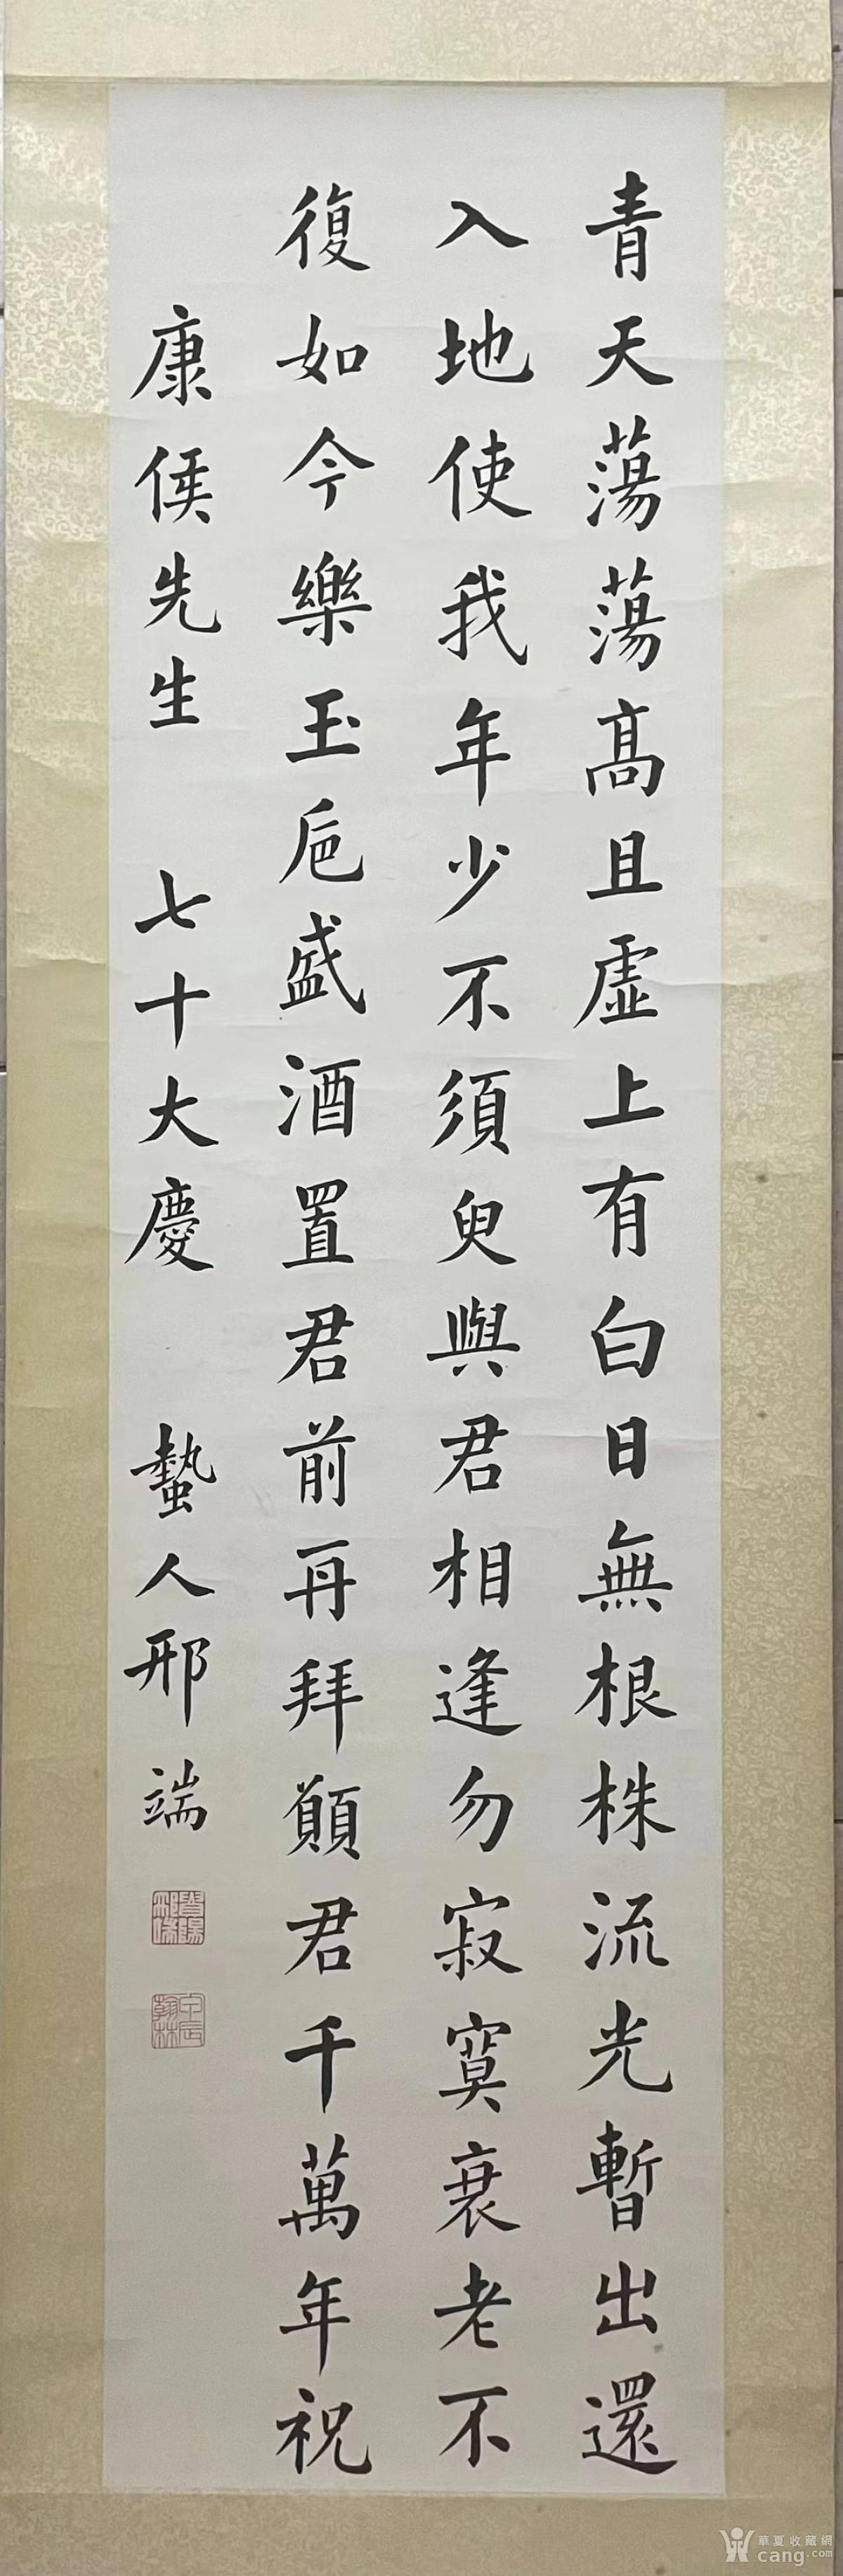 青天蕩蕩髙且虛上有白日無根株流光暫出還
入地使我年少不須臾與君相逢勿寂寞衰老不
復如今樂玉巵盛酒置君前再拜願君千萬年祝
康侯先生 七十大慶 蟄人邢端
貴陽邢端
甲辰翰林
華夏收藏網
cang.com